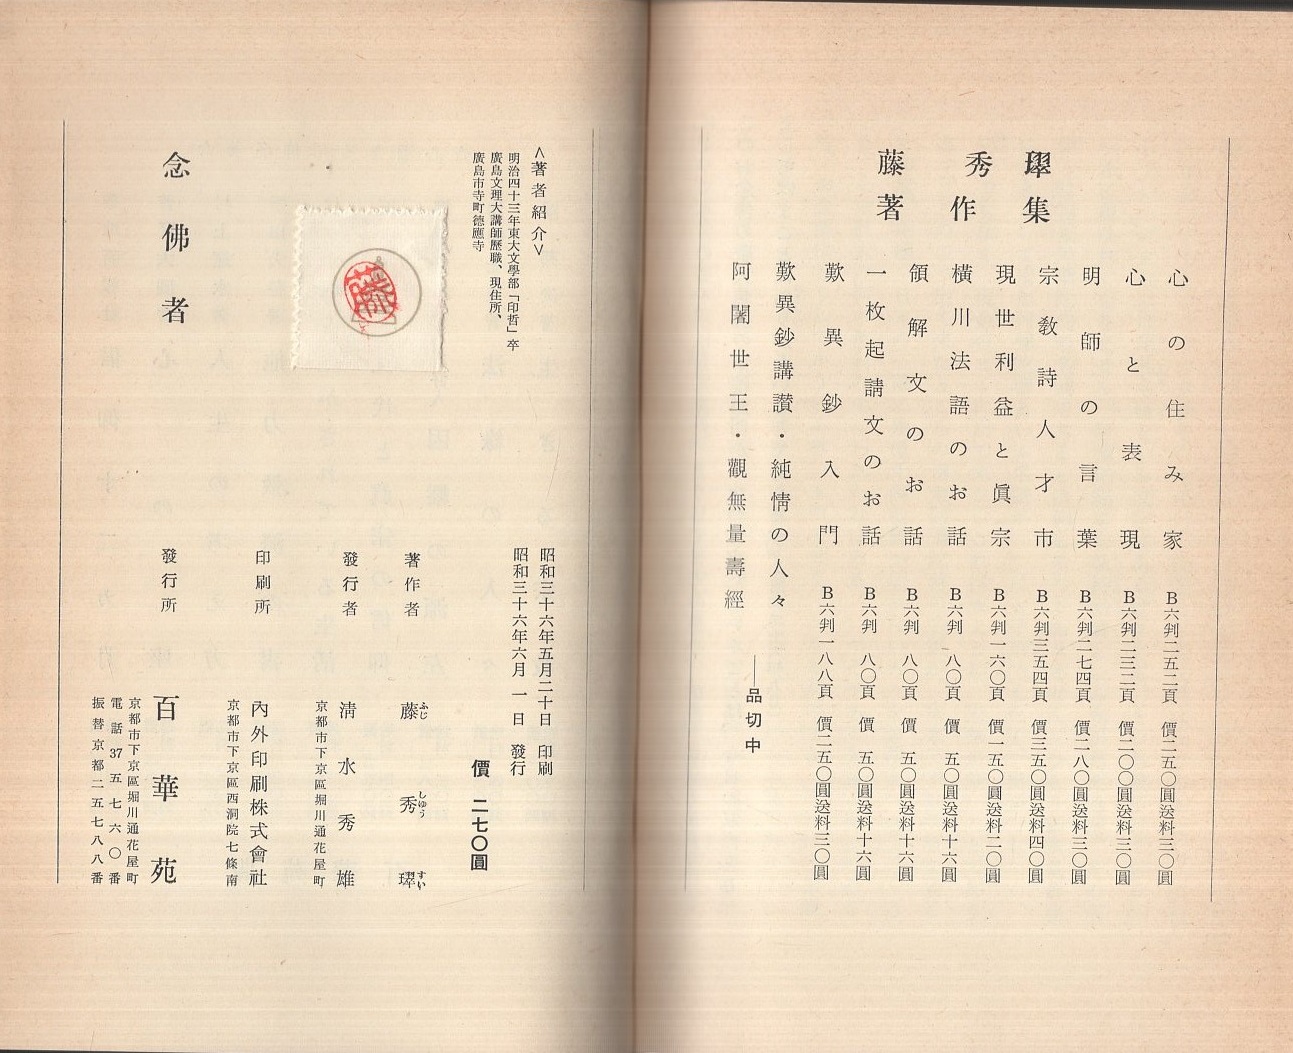 藤秀璻
著作集
心の住み家 B六判二五二頁 價二五〇圓送料三〇圓
心と表現 B六判二三二頁 價二〇〇圓送料三〇圓
明師の言葉 B六判二七四頁 價二八〇圓送料三〇圓
宗敎詩人才市 B六判三五四頁 價三五〇圓送料四〇圓
現世利益と眞宗 B六判一六〇頁 價一五〇圓送料二〇圓
横川法語のお話 B六判 八〇頁 價 五〇圓送料十六圓
領解文のお話 B六判 八〇頁 價 五〇圓送料十六圓
一枚起請文のお話 B六判 八〇頁 價 五〇圓送料十六圓
歎異鈔入門 B六判一八八頁 價二五〇圓送料三〇圓
歎異鈔講讃・純情の人々
阿闍世王・觀無量壽經 ――品切中
<著者紹介>
明治四十三年東大文學部「印哲」卒
廣島文理大講師歷職、現住所、
廣島市寺町德應寺
昭和三十六年五月二十日 印刷
昭和三十六年六月一日 發行
價 二七〇圓
著作者 藤ふじ 秀しゅう 璻すい
發行者 淸水秀雄
京都市下京區堀川通花屋町
印刷所 內外印刷株式會社
京都市下京區西洞院七條南
發行所 百華苑
京都市下京區堀川通花屋町
電話37五七六〇番
振替京都二五七八八番
念佛者